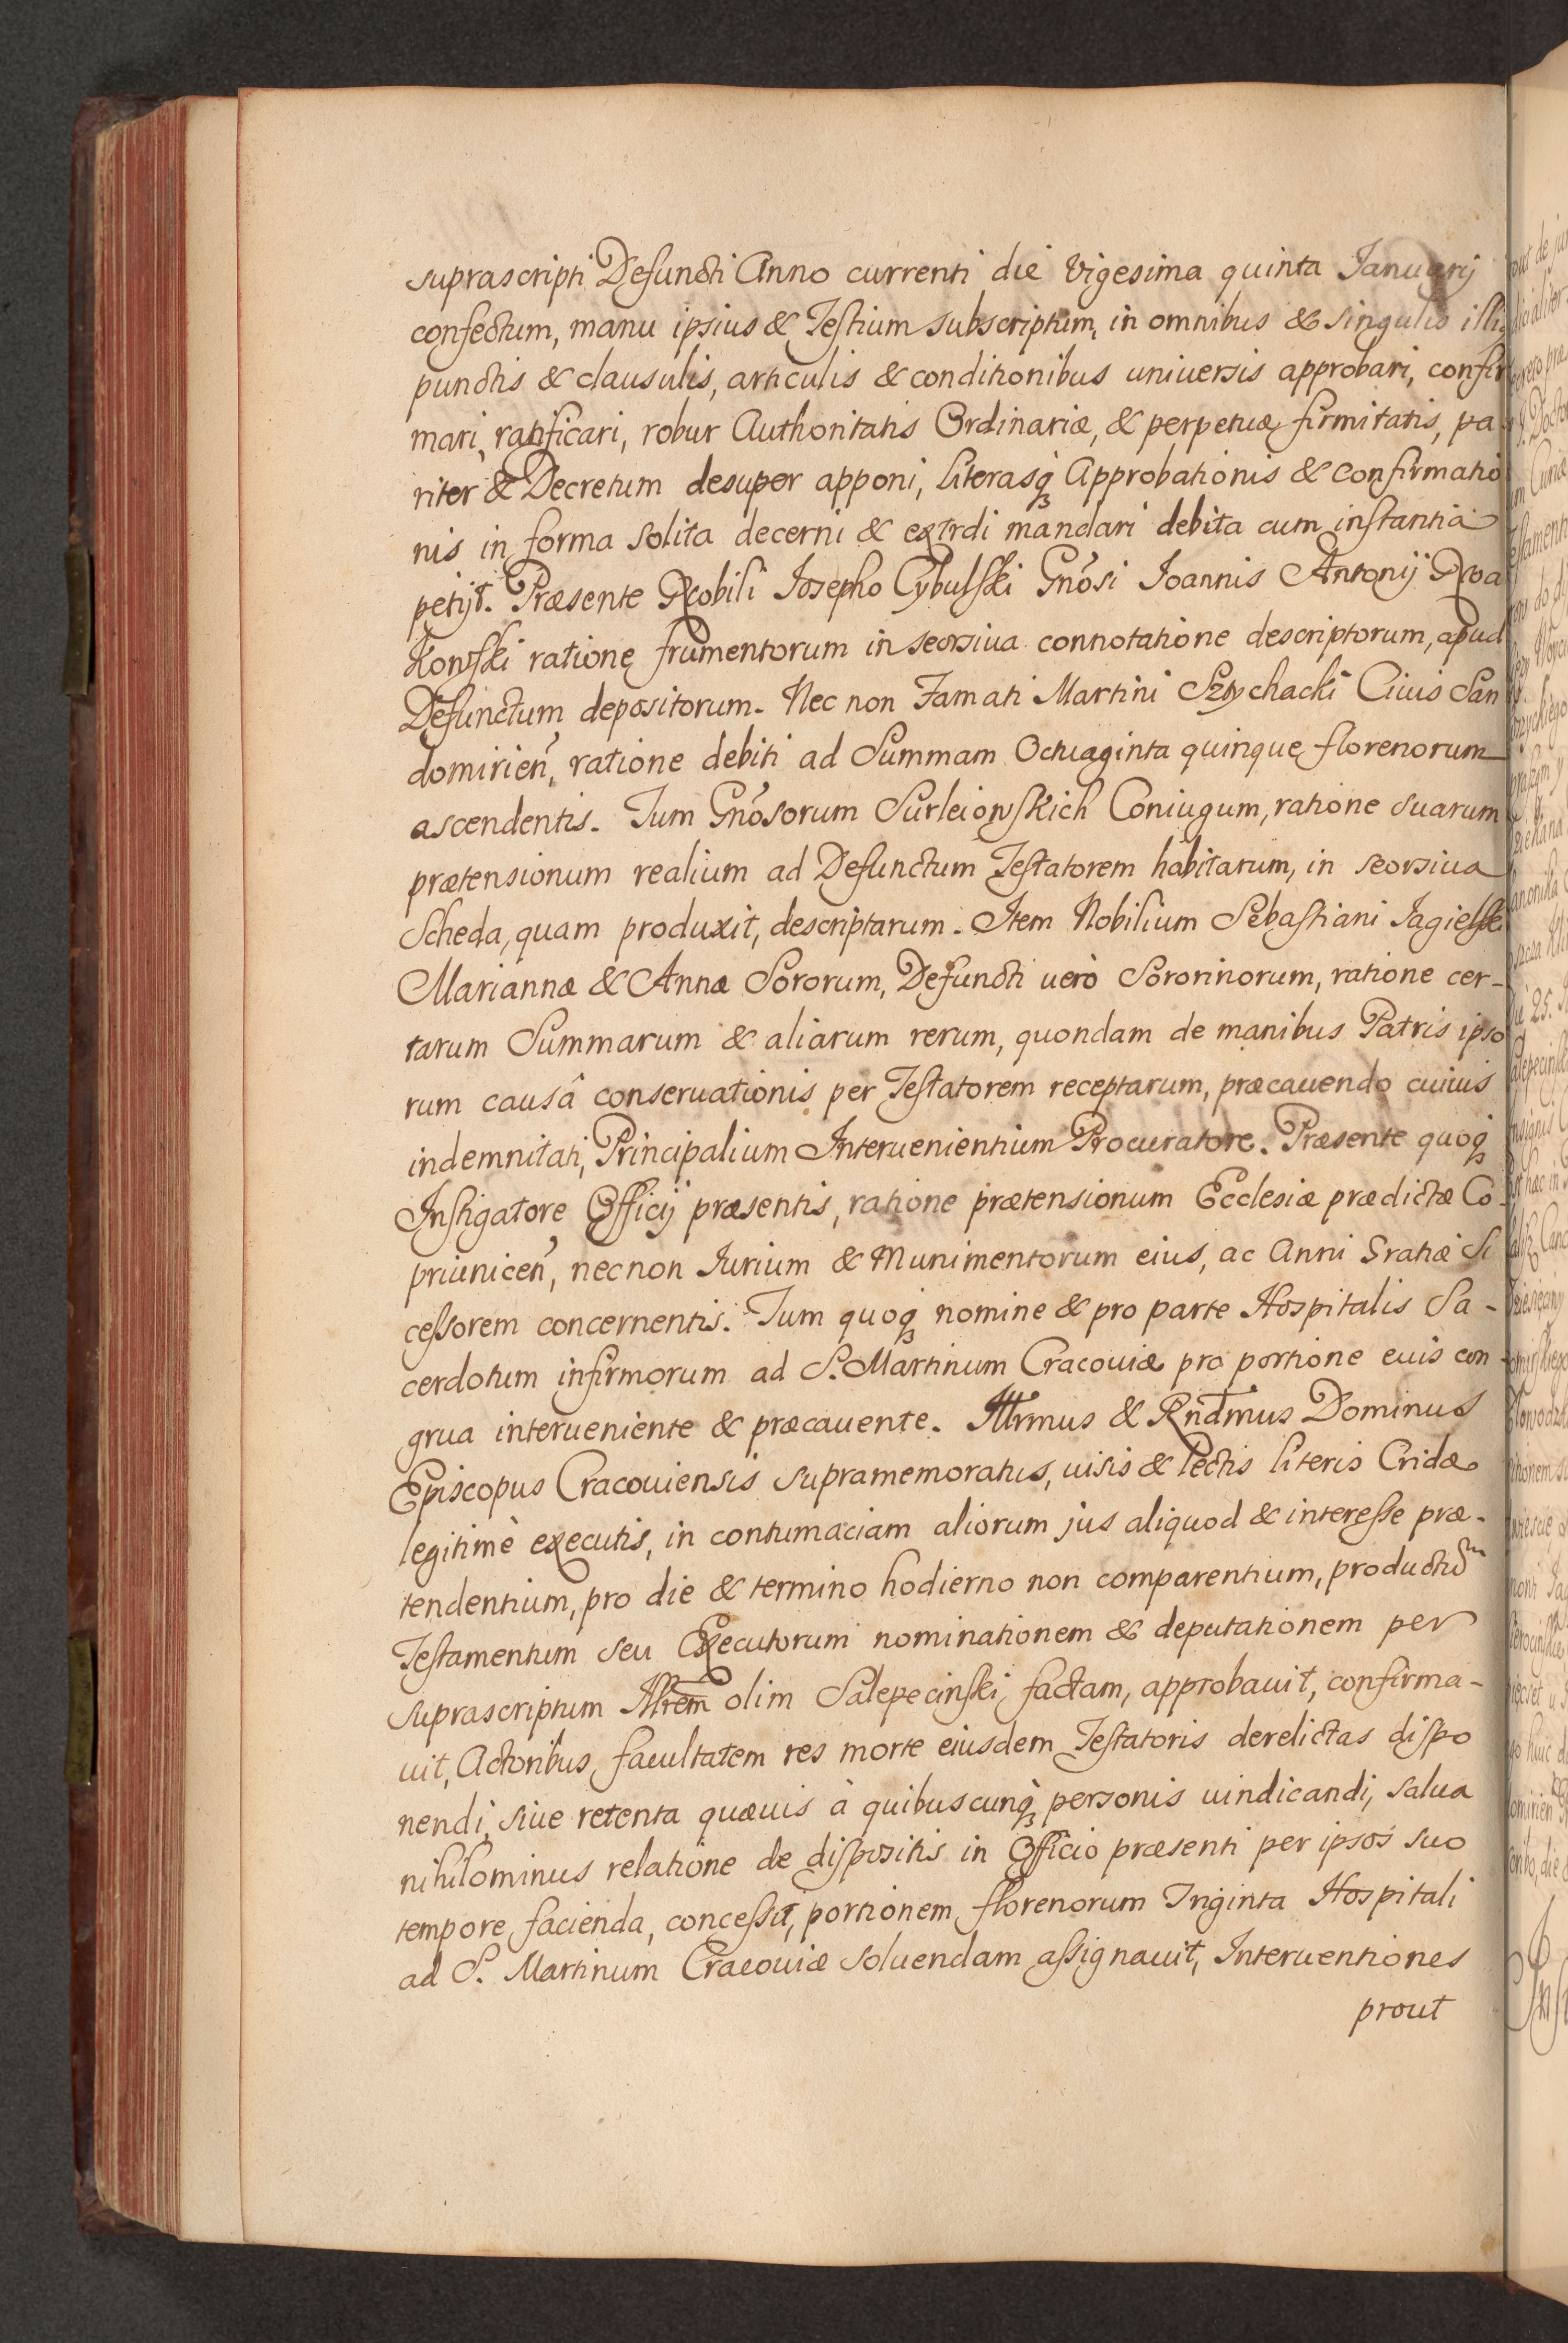 suprascripti Defuncti Anno currenti die Vigesima quinta Januarij
confectum, manu ipsius & Testium subscriptum, in omnibus & singulis illi
punctis & clausulis, articulis & conditionibus uniuersis approbari, confir
mari, ratificari, robur Authoritatis Ordinariæ, & perpetuæ firmitatis, pa
riter & Decretum desuper apponi, Literasq́ꝫ Approbationis & confirmatio
nis in forma solita decerni & extrdi mandari debita cum instantia
petijt. Præsente Nobili Josepho Cybulski Gnósi Joannis Antonij Rwa
Kowski ratione frumentorum in seorsiua connotatione descriptorum, apud
Defunctum depositorum. Nec non Famati Martini Sztychacki Ciuis San
domirień, ratione debiti ad Summam Octuaginta quinque florenorum
ascendentis. Tum Gnósorum Surleiowskich Coniugum, ratione suarum
prætensionum realium ad Defunctum Testatorem habitarum, in seorsiua
Scheda, quam produxit, descriptarum. Item Nobilium Sebastiani Jagielski
Mariannæ & Annæ Sororum, Defuncti uerò Sororinorum, ratione cer-
tarum Summarum & aliarum rerum, quondam de manibus Patris ipso
rum causâ conseruationis per Testatorem receptarum, præcauendo cuiuis
indemnitati, Principalium Interuenientium Procuratore. Præsente quoq́ꝫ
Instigatore Officij præsentis, ratione prætensionum Ecclesiæ prædictæ Co-
priuniceń, necnon Jurium & Munimentorum eius, ac Anni Gratiæ Su
cessorem concernentis. Tum quoq́ꝫ nomine & pro parte Hospitalis Sa-
cerdotum infirmorum ad S. Martinum Cracouiæ pro portione euis con
grua interueniente & præcauente. Illrmus & Rndmus Dominus
Episcopus Cracouiensis supramemoratus, uisis & lectis literis Cridæ
legitimè executis, in contumaciam aliorum jus aliquod & interesse præ-
tendentium, pro die & termino hodierno non comparentium, productũm
Testamentum seu Executorum nominationem & deputationem per
suprascriptum Illrem olim Salepecinski factam, approbauit, confirma-
uit, Actoribus facultatem res morte eiusdem Testatoris derelictas dispo
nendi, siue retenta quæuis à quibuscunq́ꝫ personis uindicandi, salua
nihilominus relatione de dispositis in Officio præsenti per ipsos suo
tempore facienda, concessit, portionem florenorum Triginta Hospitali
ad S. Martinum Cracouiæ soluendam assignauit, Interuentiones
prout